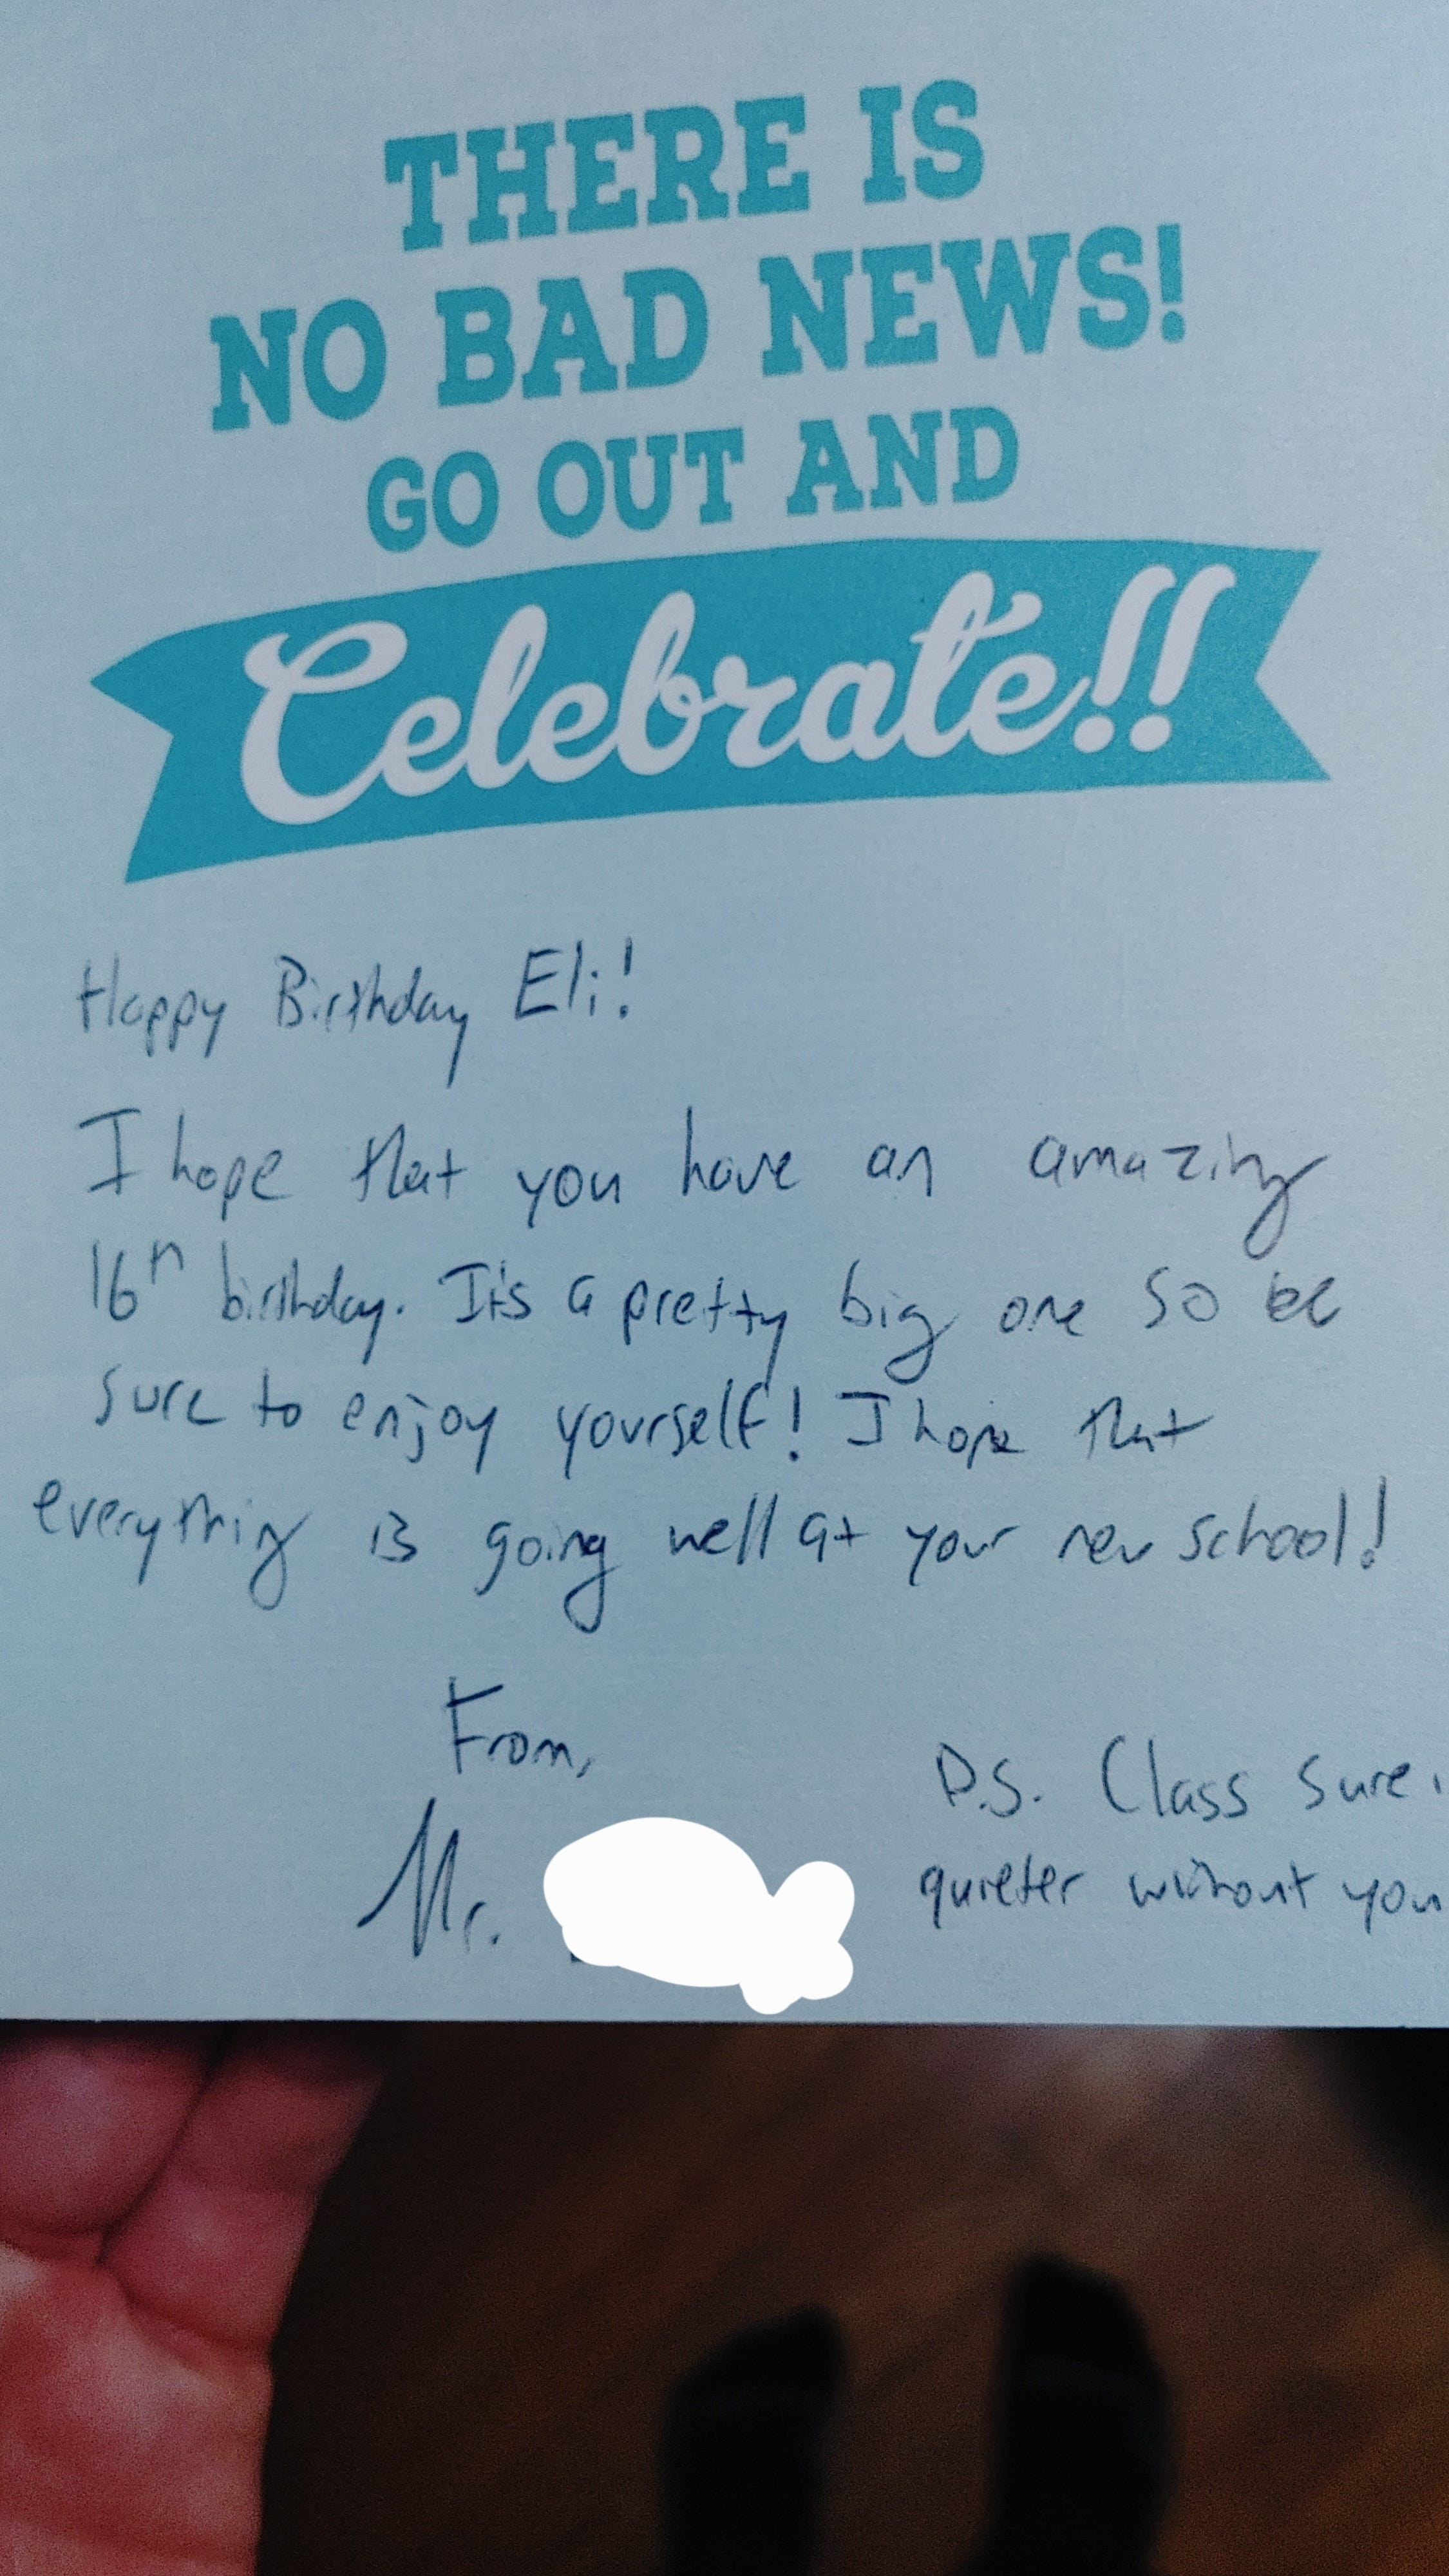 THERE IS
NO BAD NEWS!
GO OUT AND
Celebrate!!
Happy Birthday Eli!
I hope that you have an amazing
16th birthday. It's a pretty big one so be
sure to enjoy yourself! I hope that
everything is going well at your new school!
From,
Mr.
P.S. Class sure
quieter without you